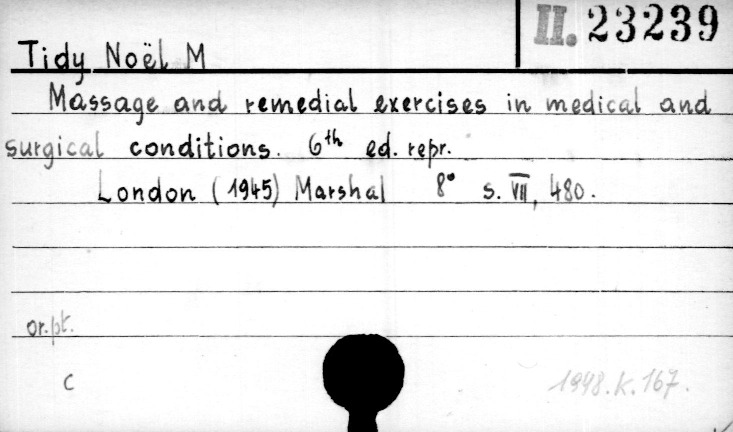 II. 23239
Tidy Noël M
Massage and remedial exercises in medical and
surgical conditions. 6th ed. repr.
London (1945) Marshal 8° s. VII, 480.
or.pt.
C
1948.K.167.